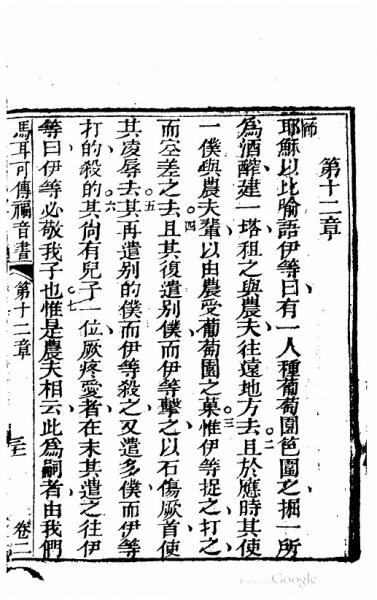 第十二章
一節
耶穌以比喻語伊等曰有一人種葡萄園笆圍之掘一所
爲酒醡建一塔租之與農夫往遠地方去二且於應時其使
一僕與農夫輩以由農受葡萄園之菓三惟伊等捉之打之
而空差之去四且其復遣別僕而伊等擊之以石傷厥首使
其凌辱去五其再遣別的僕而伊等殺之又遣多僕而伊等
打的殺的六其尚有兒子一位厥疼愛者在末其遣之往伊
等曰伊等必敬我子也七惟是農夫相云此爲嗣者由我們
馬耳可傳福音書 第十二章 卷二
Google